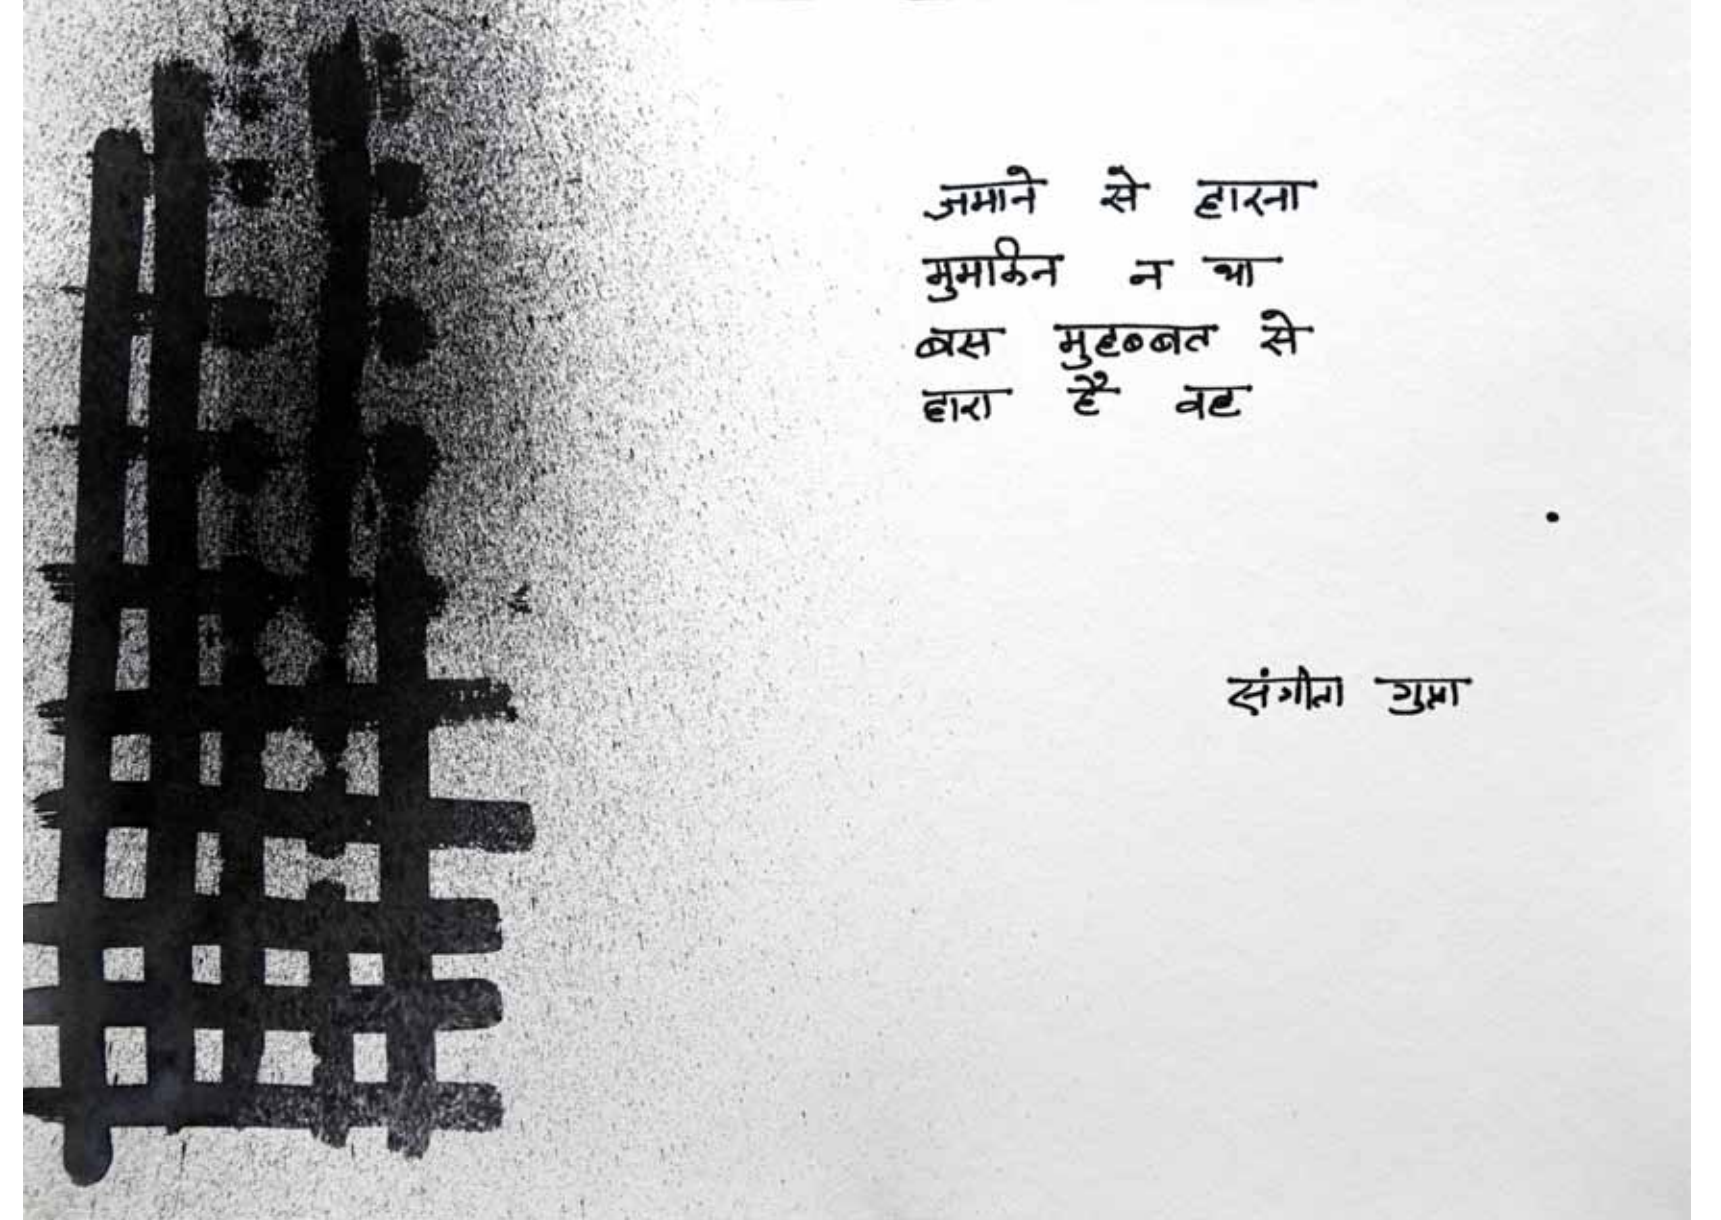 जमाने से हारना
मुमकिन न था
बस मुहब्बत से
हारा है वह
संगीता गुप्ता